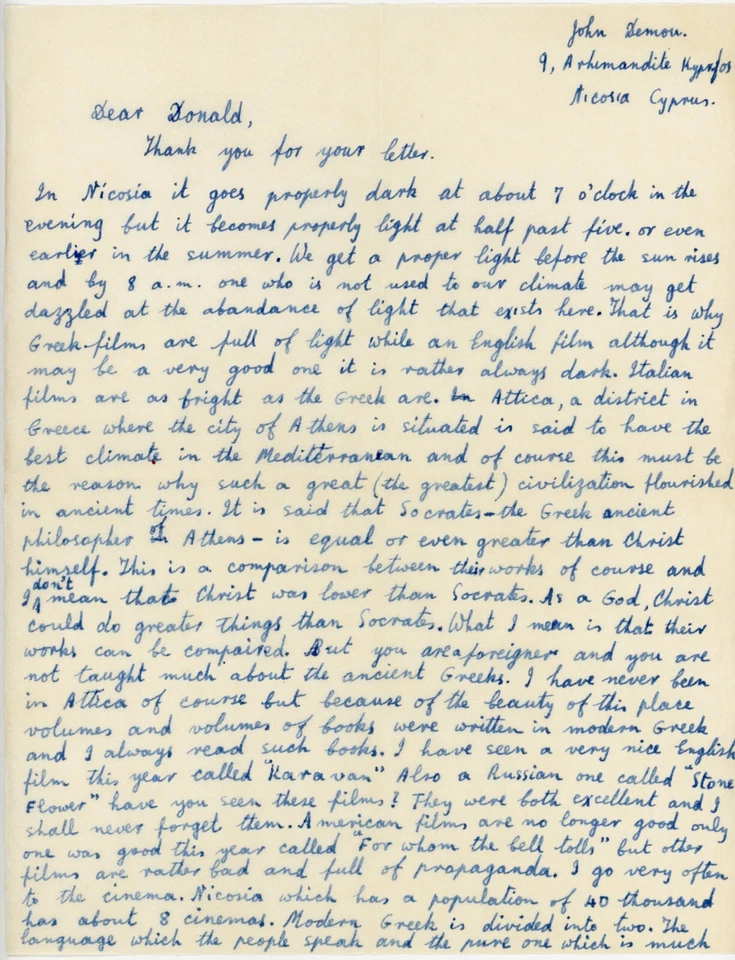 John Demou.
9, Arhimandite Kypr
Nicosia Cyprus.
Dear Donald,
Thank you for your letter.
In Nicosia it goes properly dark at about 7 o'clock in the
evening but it becomes properly light at half past five. or even
earlier in the summer. We get a proper light before the sun rises
and by 8 a.m. one who is not used to our climate may get
dazzled at the abandance of light that exists here. That is why
Greek films are full of light while an English film although it
may be a very good one it is rather always dark. Italian
films are as fright as the Greek are. In Attica, a district in
Greece where the city of Athens is situated is said to have the
best climate in the Mediterranean and of course this must be
the reason why such a great (the greatest) civilization flourished
in ancient times. It is said that Socrates – the Greek ancient
philosopher of Athens – is equal or even greater than Christ
himself. This is a comparison between their works of course and
I don't mean that Christ was lower than Socrates. As a God, Christ
could do greater things than Socrates. What I mean is that their
works can be compaired. But you are a foreigner and you are
not taught much about the ancient Greeks. I have never been
in Attica of course but because of the beauty of this place
volumes and volumes of books were written in modern Greek
and I always read such books. I have seen a very nice English
film this year called "Karavan" Also a Russian one called "Stone
Flower" have you seen these films? They were both excellent and I
shall never forget them. American films are no longer good only
one was good this year called "For whom the bell tolls" but other
films are rather bad and full of propaganda. I go very often
to the cinema. Nicosia which has a population of 40 thousand
has about 8 cinemas. Modern Greek is divided into two. The
language which the people speak and the pure one which is much